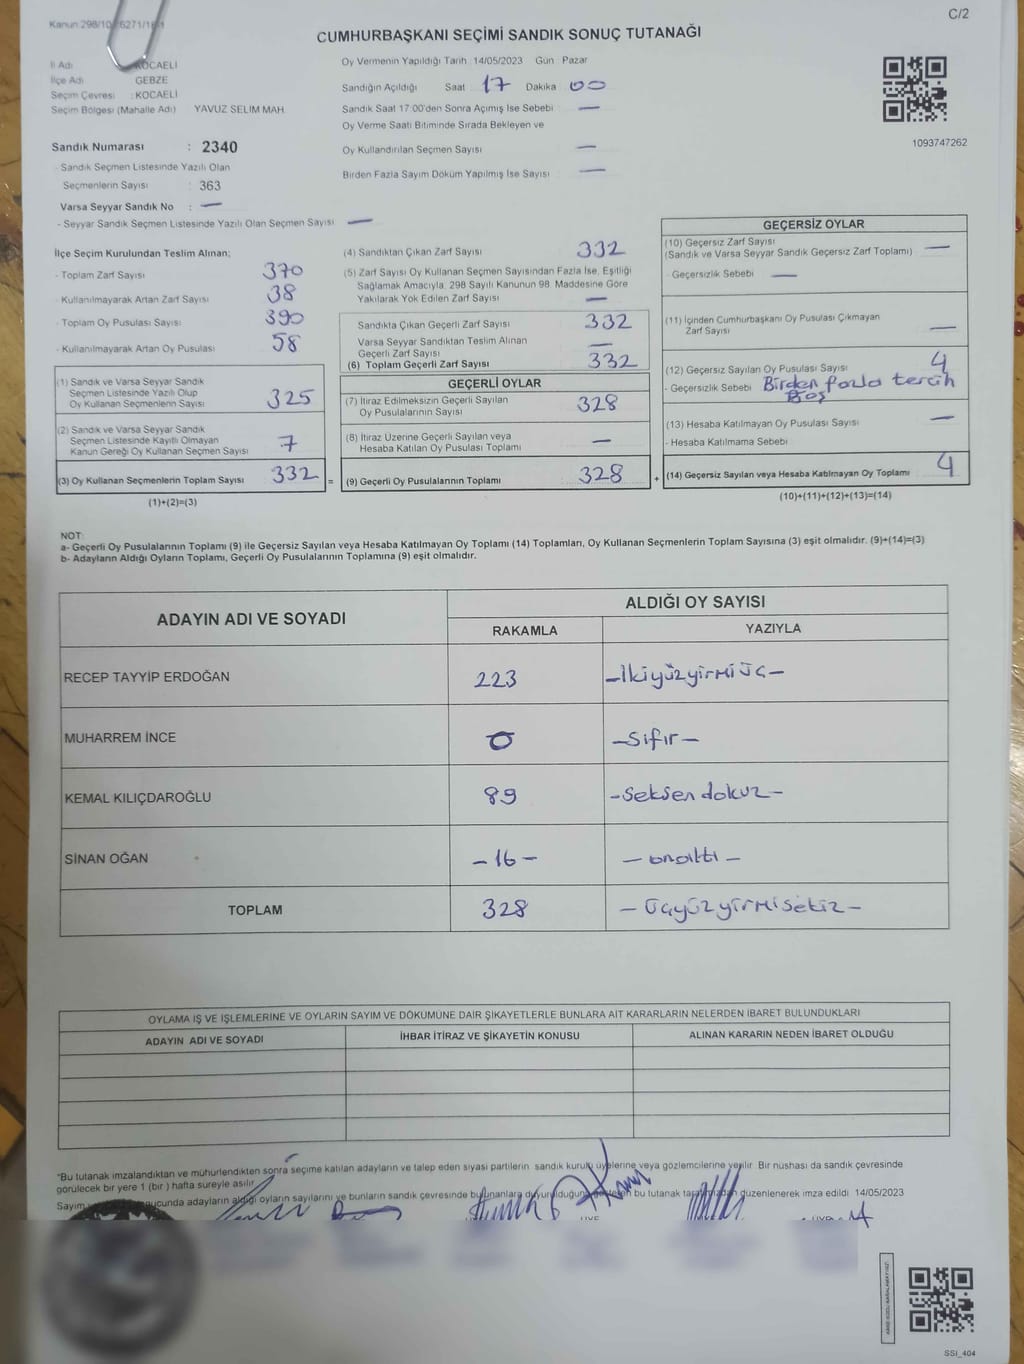 Kanun 298/10 6271/16-1
C/2
CUMHURBAŞKANI SEÇİMİ SANDIK SONUÇ TUTANAĞI
İl Adı KOCAELİ
İlçe Adı GEBZE
Seçim Çevresi : KOCAELİ
Seçim Bölgesi (Mahalle Adı) YAVUZ SELİM MAH.
Sandık Numarası : 2340
- Sandık Seçmen Listesinde Yazılı Olan
Seçmenlerin Sayısı : 363
Varsa Seyyar Sandık No : —
- Seyyar Sandık Seçmen Listesinde Yazılı Olan Seçmen Sayısı —
Oy Vermenin Yapıldığı Tarih 14/05/2023 Gün Pazar
Sandığın Açıldığı Saat 17 Dakika 00
Sandık Saat 17:00'den Sonra Açımış İse Sebebi —
Oy Verme Saati Bitiminde Sırada Bekleyen ve
Oy Kullandırılan Seçmen Sayısı —
Birden Fazla Sayım Döküm Yapılmış İse Sayısı —
1093747262
İlçe Seçim Kurulundan Teslim Alınan;
- Toplam Zarf Sayısı 370
- Kullanılmayarak Artan Zarf Sayısı 38
- Toplam Oy Pusulası Sayısı 390
- Kullanılmayarak Artan Oy Pusulası 58
(1) Sandık ve Varsa Seyyar Sandık
Seçmen Listesinde Yazılı Olup
Oy Kullanan Seçmenlerin Sayısı 325
(2) Sandık ve Varsa Seyyar Sandık
Seçmen Listesinde Kayıtlı Olmayan
Kanun Gereği Oy Kullanan Seçmen Sayısı 7
(3) Oy Kullanan Seçmenlerin Toplam Sayısı 332 =
(1)+(2)=(3)
(4) Sandıktan Çıkan Zarf Sayısı 332
(5) Zarf Sayısı Oy Kullanan Seçmen Sayısından Fazla İse, Eşitliği
Sağlamak Amacıyla, 298 Sayılı Kanunun 98. Maddesine Göre
Yakılarak Yok Edilen Zarf Sayısı —
Sandıkta Çıkan Geçerli Zarf Sayısı 332
Varsa Seyyar Sandıktan Teslim Alınan
Geçerli Zarf Sayısı —
(6) Toplam Geçerli Zarf Sayısı 332
GEÇERLİ OYLAR
(7) İtiraz Edilmeksizin Geçerli Sayılan
Oy Pusulalarının Sayısı 328
(8) İtiraz Üzerine Geçerli Sayılan veya
Hesaba Katılan Oy Pusulası Toplamı —
(9) Geçerli Oy Pusulalarının Toplamı 328 +
GEÇERSİZ OYLAR
(10) Geçersiz Zarf Sayısı
(Sandık ve Varsa Seyyar Sandık Geçersiz Zarf Toplamı) —
- Geçersizlik Sebebi —
(11) İçinden Cumhurbaşkanı Oy Pusulası Çıkmayan
Zarf Sayısı —
(12) Geçersiz Sayılan Oy Pusulası Sayısı 4
- Geçersizlik Sebebi Birden fazla tercih
Boş
(13) Hesaba Katılmayan Oy Pusulası Sayısı —
- Hesaba Katılmama Sebebi
(14) Geçersiz Sayılan veya Hesaba Katılmayan Oy Toplamı 4
(10)+(11)+(12)+(13)=(14)
NOT:
a- Geçerli Oy Pusulalarının Toplamı (9) ile Geçersiz Sayılan veya Hesaba Katılmayan Oy Toplamı (14) Toplamları, Oy Kullanan Seçmenlerin Toplam Sayısına (3) eşit olmalıdır. (9)+(14)=(3)
b- Adayların Aldığı Oyların Toplamı, Geçerli Oy Pusulalarının Toplamına (9) eşit olmalıdır.
ADAYIN ADI VE SOYADI
ALDIĞI OY SAYISI
RAKAMLA YAZIYLA
RECEP TAYYİP ERDOĞAN 223 -İkiyüzyirmiüç-
MUHARREM İNCE 0 -Sıfır-
KEMAL KILIÇDAROĞLU 89 -Seksendokuz-
SİNAN OĞAN -16- -onaltı-
TOPLAM 328 -Üçyüzyirmisekiz-
OYLAMA İŞ VE İŞLEMLERİNE VE OYLARIN SAYIM VE DÖKÜMÜNE DAİR ŞİKAYETLERLE BUNLARA AİT KARARLARIN NELERDEN İBARET BULUNDUKLARI
ADAYIN ADI VE SOYADI İHBAR İTİRAZ VE ŞİKAYETİN KONUSU ALINAN KARARIN NEDEN İBARET OLDUĞU
*Bu tutanak imzalandıktan ve mühürlendikten sonra seçime katılan adayların ve talep eden siyasi partilerin sandık kurulu üyelerine veya gözlemcilerine verilir. Bir nüshası da sandık çevresinde
görülecek bir yere 1 (bir) hafta süreyle asılır.
Sayım ucunda adayların aldığı oyların sayılarını ve bunların sandık çevresinde bulunanlara duyurulduğunu bu tutanak düzenlenerek imza edildi. 14/05/2023
SSİ_404